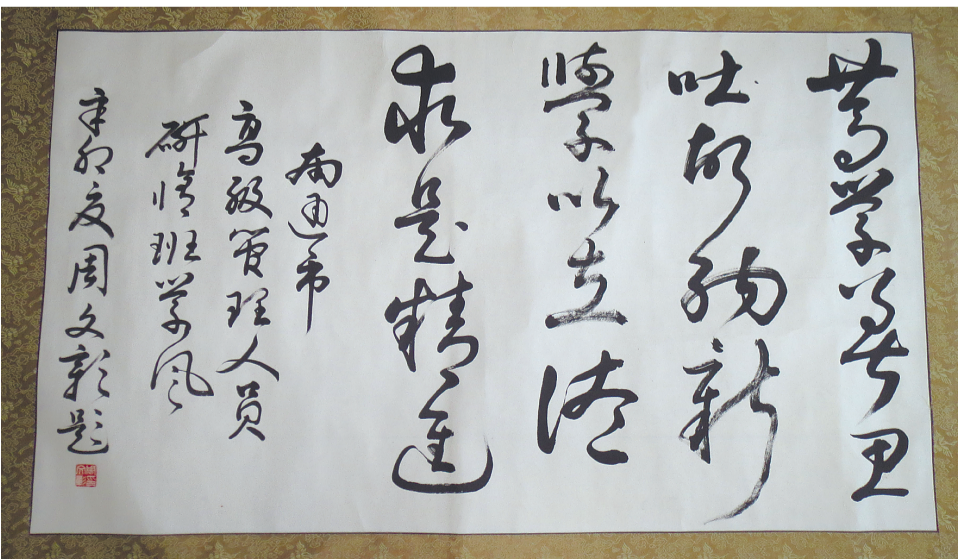 笃学善思
吐故纳新
學以立德
求是精進
南通市
高级管理人员
研修班学风
辛卯夏周文彰题